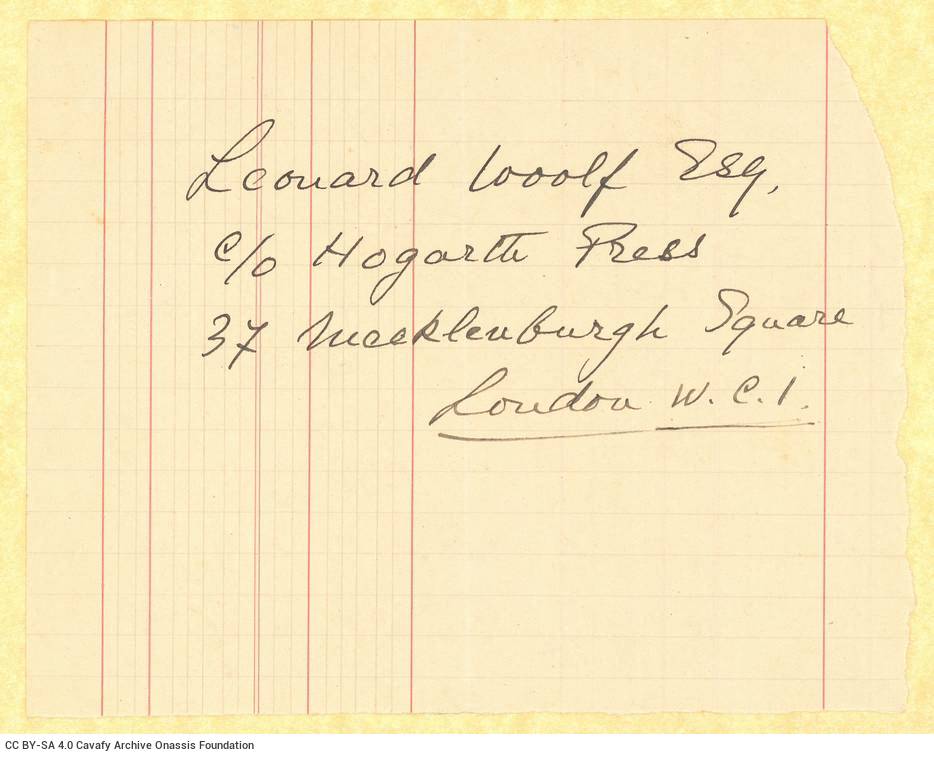 Leonard Woolf Esq,
c/o Hogarth Press
37 Mecklenburgh Square
London W.C.1.
CC BY-SA 4.0 Cavafy Archive Onassis Foundation